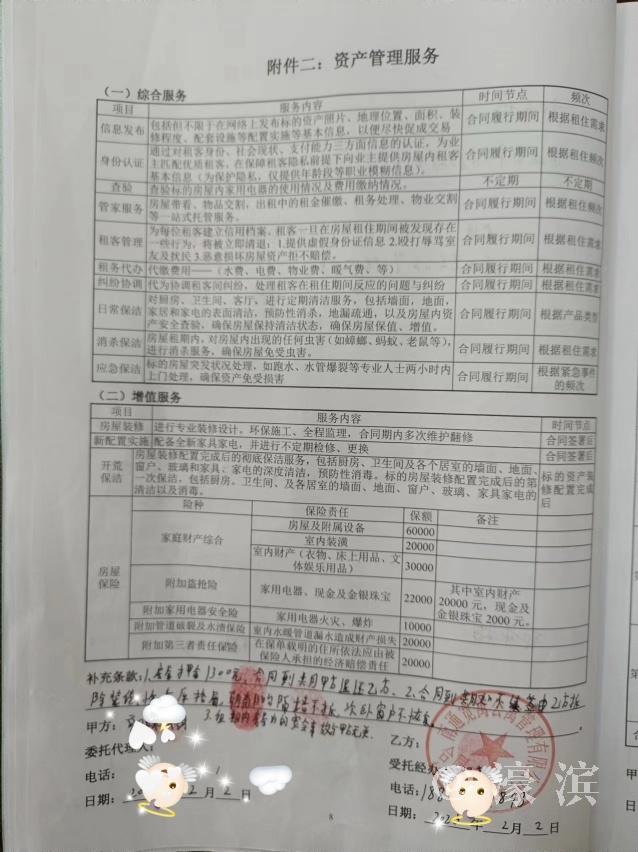 附件二：资产管理服务
（一）综合服务
项目 服务内容 时间节点 频次
信息发布 包括但不限于在网络上发布标的资产照片、地理位置、面积、装修程度、配套设施等配置实施等基本信息，以便尽快促成交易 合同履行期间 根据租住需求
身份认证 通过对租客身份、社会现状、支付能力三方面信息的认证，为业主匹配优质租客，在保障租客隐私前提下向业主提供房屋内租客基本信息（为保护隐私，仅提供年龄段等职业模糊信息）。 合同履行期间 根据租住频次
查验 查验标的房屋内家用电器的使用情况及费用缴纳情况。 不定期 不定期
管家服务 房屋带看、物品交割，出租中的租金催缴、租务处理、物业交割等一站式托管服务。 合同履行期间 根据租住需求
租客管理 为每位租客建立信用档案，租客一旦在房屋租住期间被发现存在一些行为，将被立即清退：1.提供虚假身份证信息 2.殴打辱骂室友及扰民 3.恶意损坏房屋资产拒不赔偿。 合同履行期间 根据租住需求
租务代办 代缴费用——（水费、电费、物业费、暖气费、等） 合同履行期间 根据租住需求
纠纷协调 代为协调租客间纠纷，处理租客在租住期间反应的问题与纠纷 合同履行期间 根据租住需求
日常保洁 对厨房、卫生间、客厅、进行定期清洁服务，包括墙面，地面，家居和家电的表面清洁，预防性消杀，地漏疏通，以及房屋内资产安全查验，确保房屋保持清洁状态，确保房屋保值、增值。 合同履行期间 根据产品类型
消杀保洁 房屋租期内，对房屋内出现的任何虫害（如蟑螂、蚂蚁、老鼠等），进行消杀服务，确保房屋免受虫害。 合同履行期间 根据租住需求
应急保洁 标的房屋突发状况处理，如跑水、水管爆裂等专业人士两小时内上门处理，确保资产免受损害 合同履行期间 根据紧急事件的频次
（二）增值服务
项目 服务内容 时间节点
房屋装修 进行专业装修设计，环保施工、全程监理，合同期内多次维护翻修 合同签署后
新配置实施 配备全新家具家电，并进行不定期检修、更换 合同签署后
开荒保洁 房屋装修配置完成后的彻底保洁服务，包括厨房、卫生间及各个居室的墙面、地面、窗户、玻璃和家具、家电的深度清洁，预防性消毒。标的房屋装修配置完成后的第一次保洁，包括厨房、卫生间、及各居室的墙面、地面、窗户、玻璃、家具家电的清洁以及消毒。 标的资产装修配置完成后
房屋保险 险种 保险责任 保额 备注
家庭财产综合 房屋及附属设备 60000
室内装潢 20000
室内财产（衣物、床上用品、文体娱乐用品） 30000
附加盗抢险 家用电器、现金及金银珠宝 22000 其中室内财产20000元，现金及金银珠宝 2000元。
附加家用电器安全险 家用电器火灾、爆炸 10000
附加管道破裂及水渍保险 室内水暖管道漏水造成财产损失 20000
附加第三者责任保险 在保单载明的住所依法应由被保险人承担的经济赔偿责任 20000
补充条款：1. 1300元，合同到期甲方退还乙方、2、合同到期
甲方：
乙方：
委托代理人：
受托经办
电话：
电话：
日期： 2月2日
日期： 年2月2日
8
濠滨